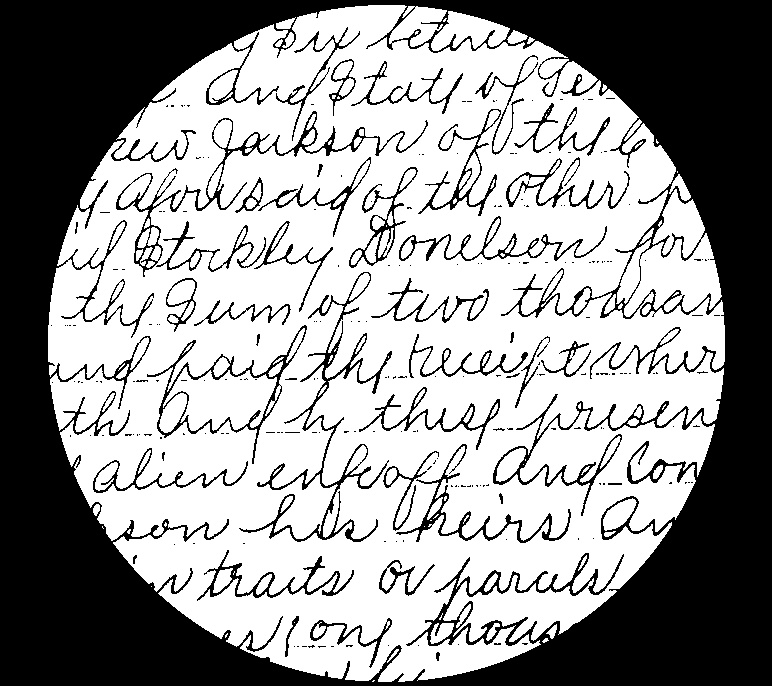 Six between
And State of Ten
rew Jackson of the
aforesaid of the other p
Stockley Donelson for
the Sum of two thousan
and paid the receipt wher
th And by these presen
alien enfeoff And Con
kson his heirs An
traits or parcels
es one thous